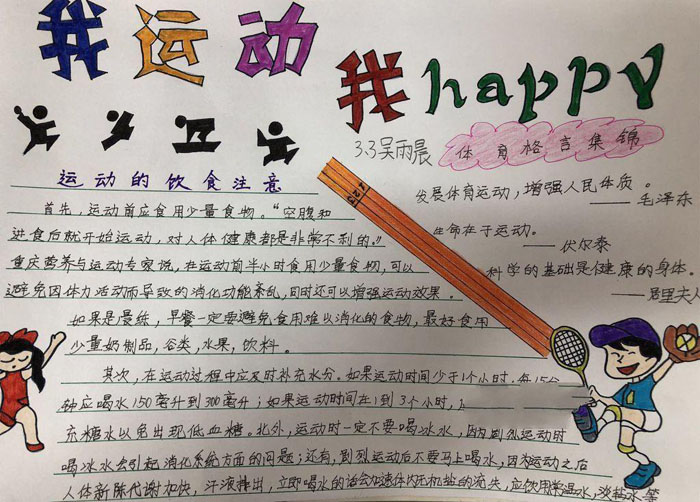 我运动
我happy
3.3吴雨晨
体育格言集锦
发展体育运动，增强人民体质。
——毛泽东
生命在于运动。
——伏尔泰
科学的基础是健康的身体。
——居里夫人
运动的饮食注意
首先，运动前应食用少量食物。“空腹和
进食后就开始运动，对人体健康都是非常不利的。”
重庆营养与运动专家说，在运动前半小时食用少量食物，可以
避免因体力活动而导致的消化功能紊乱，同时还可以增强运动效果。
如果是晨练，早餐一定要避免食用难以消化的食物，最好食用
少量奶制品，谷类，水果，饮料。
其次，在运动过程中应及时补充水分。如果运动时间少于1个小时，每15分
钟应喝水150毫升到300毫升；如果运动时间在1到3个小时，
充糖水以免出现低血糖。此外，运动时一定不要喝冰水，因为剧烈运动时
喝冰水会引起消化系统方面的问题；还有，剧烈运动后不要马上喝水，因为运动之后
人体新陈代谢加快，汗液排出，立即喝水的话会加速体内无机盐的流失，应饮用常温水，淡盐水等